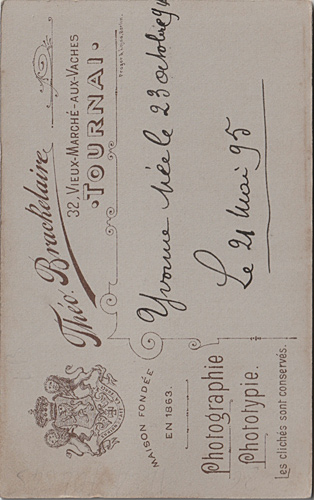 Théo. Brackelaire
32, VIEUX-MARCHÉ-AUX-VACHES
TOURNAI
MAISON FONDÉE
EN 1863.
Photographie
Phototypie.
Les clichés sont conservés.
Yvonne née le 23 octobre 94
Le 21 Mai 95